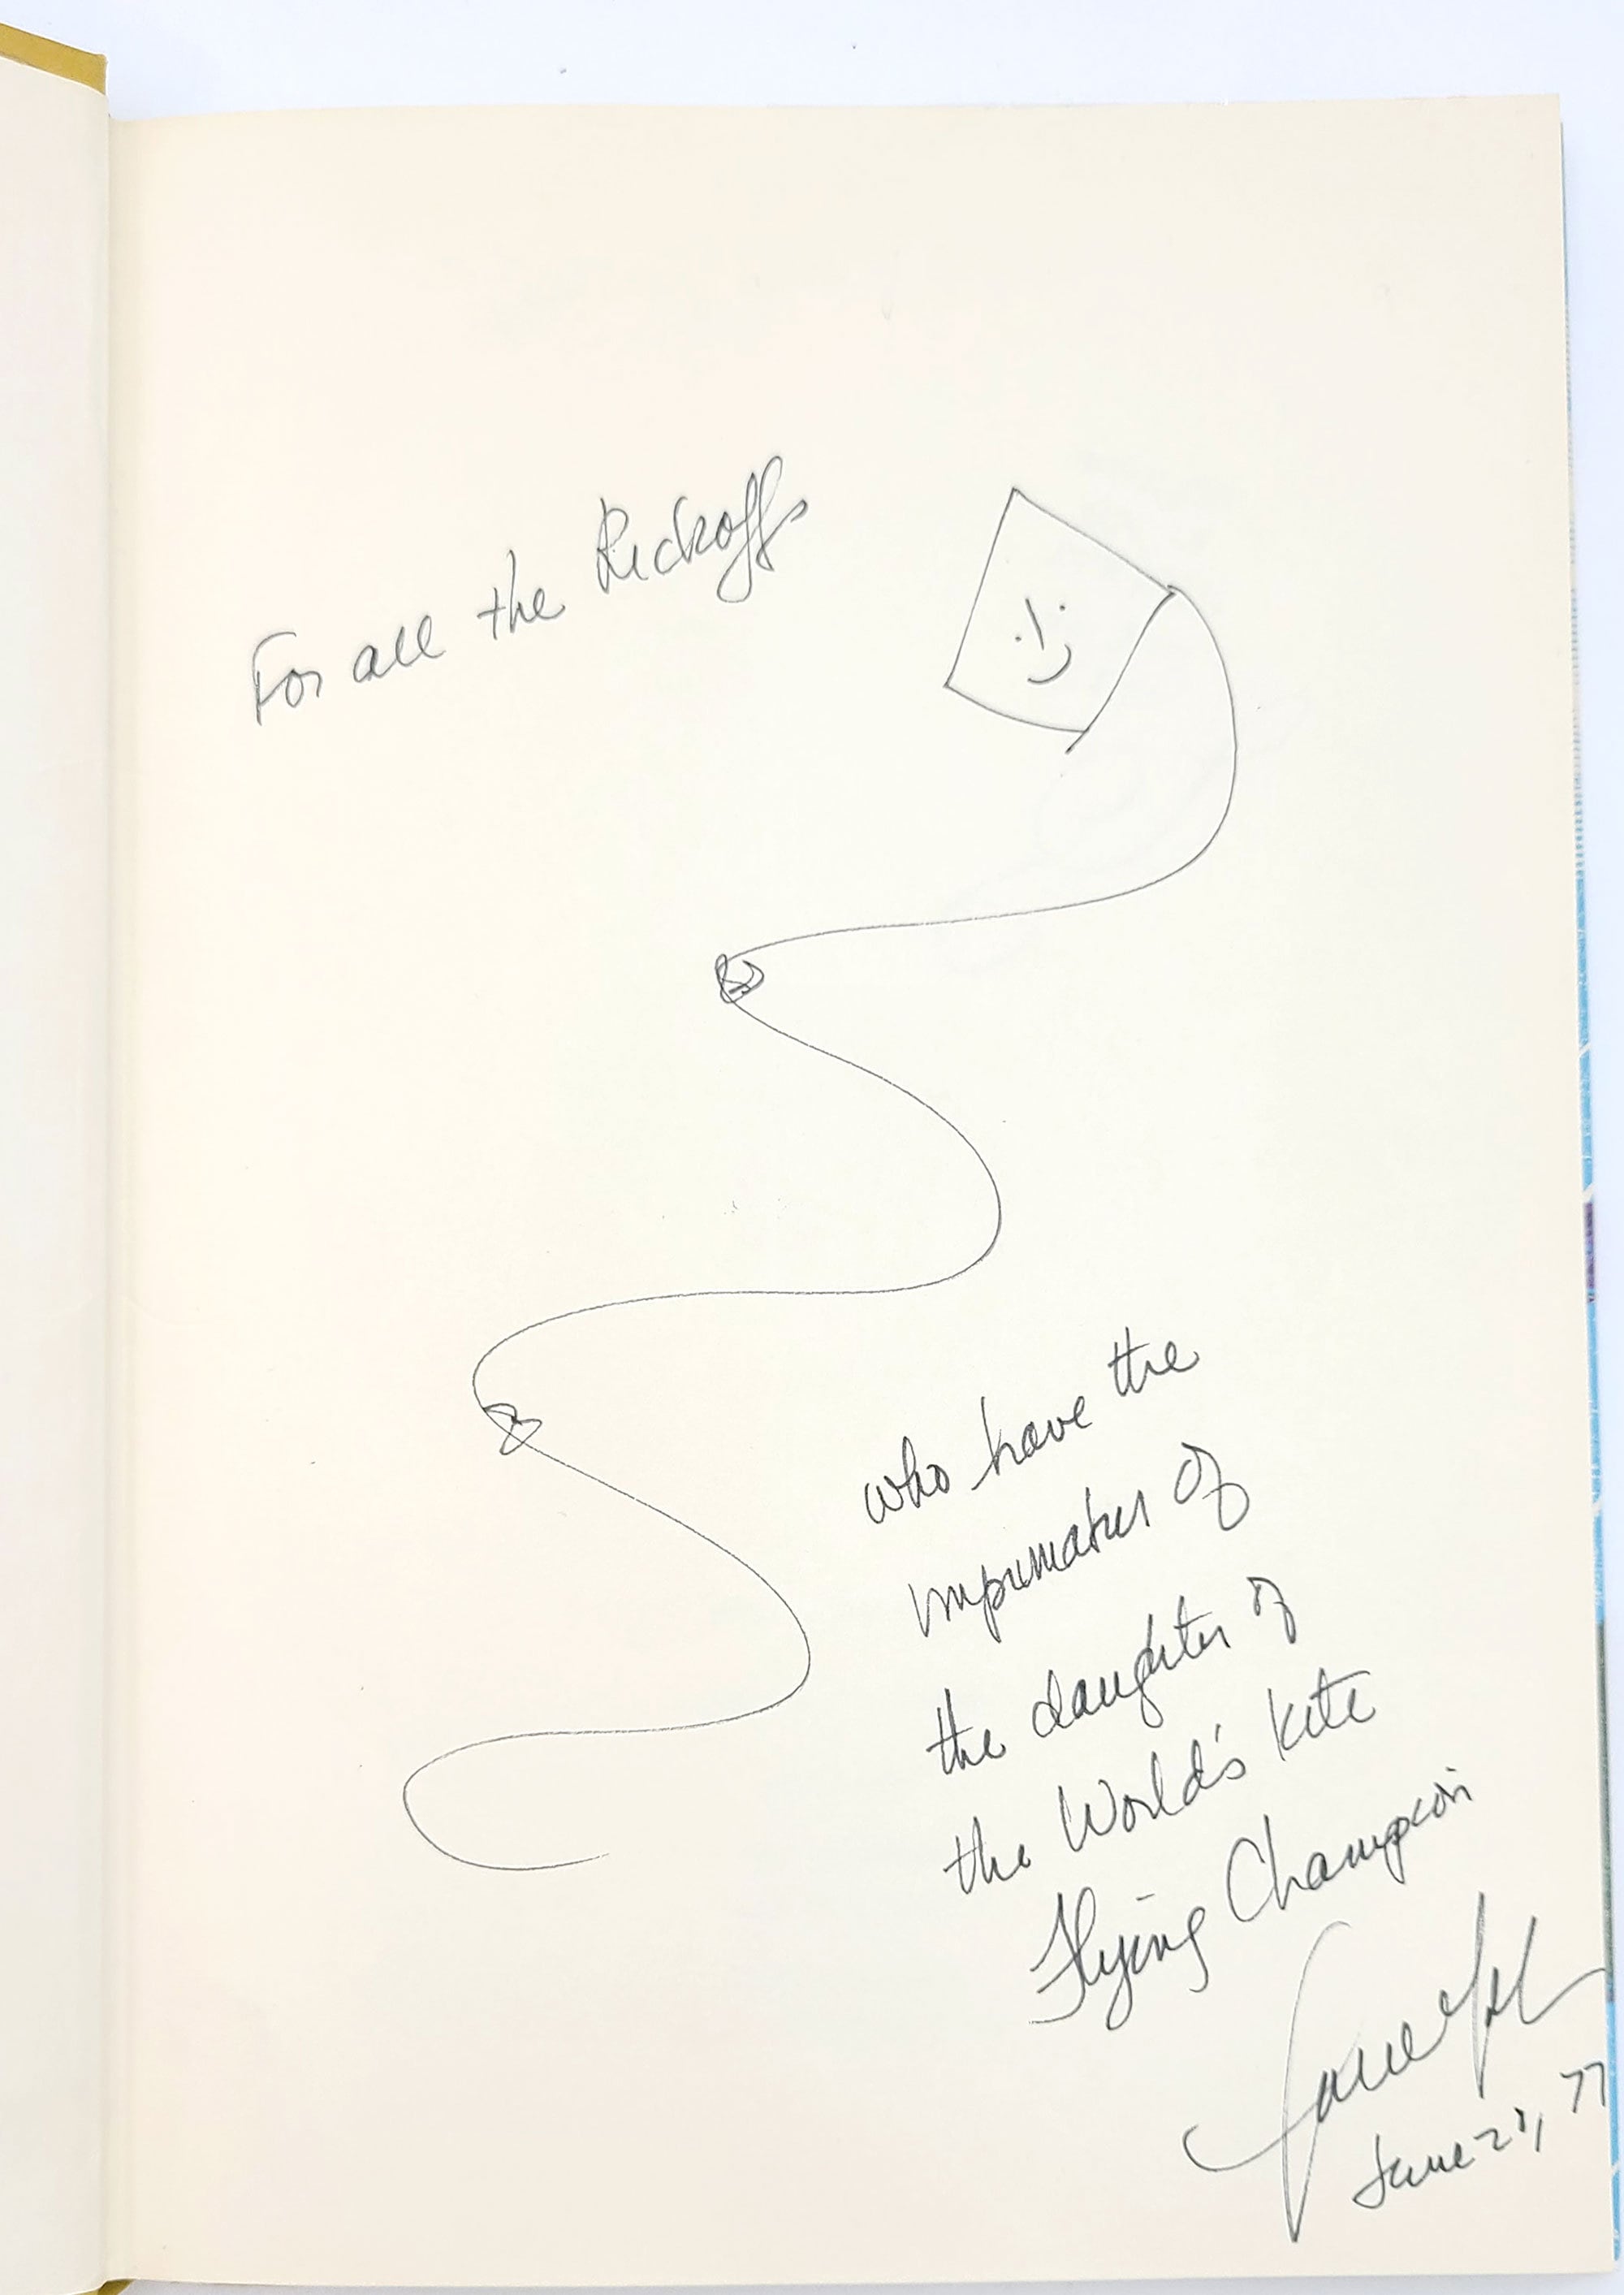 For all the Rickoffs
who have the
imprimatur of
the daughter of
the World's Kite
Flying Champion
Jane Yolen
June 21, 77